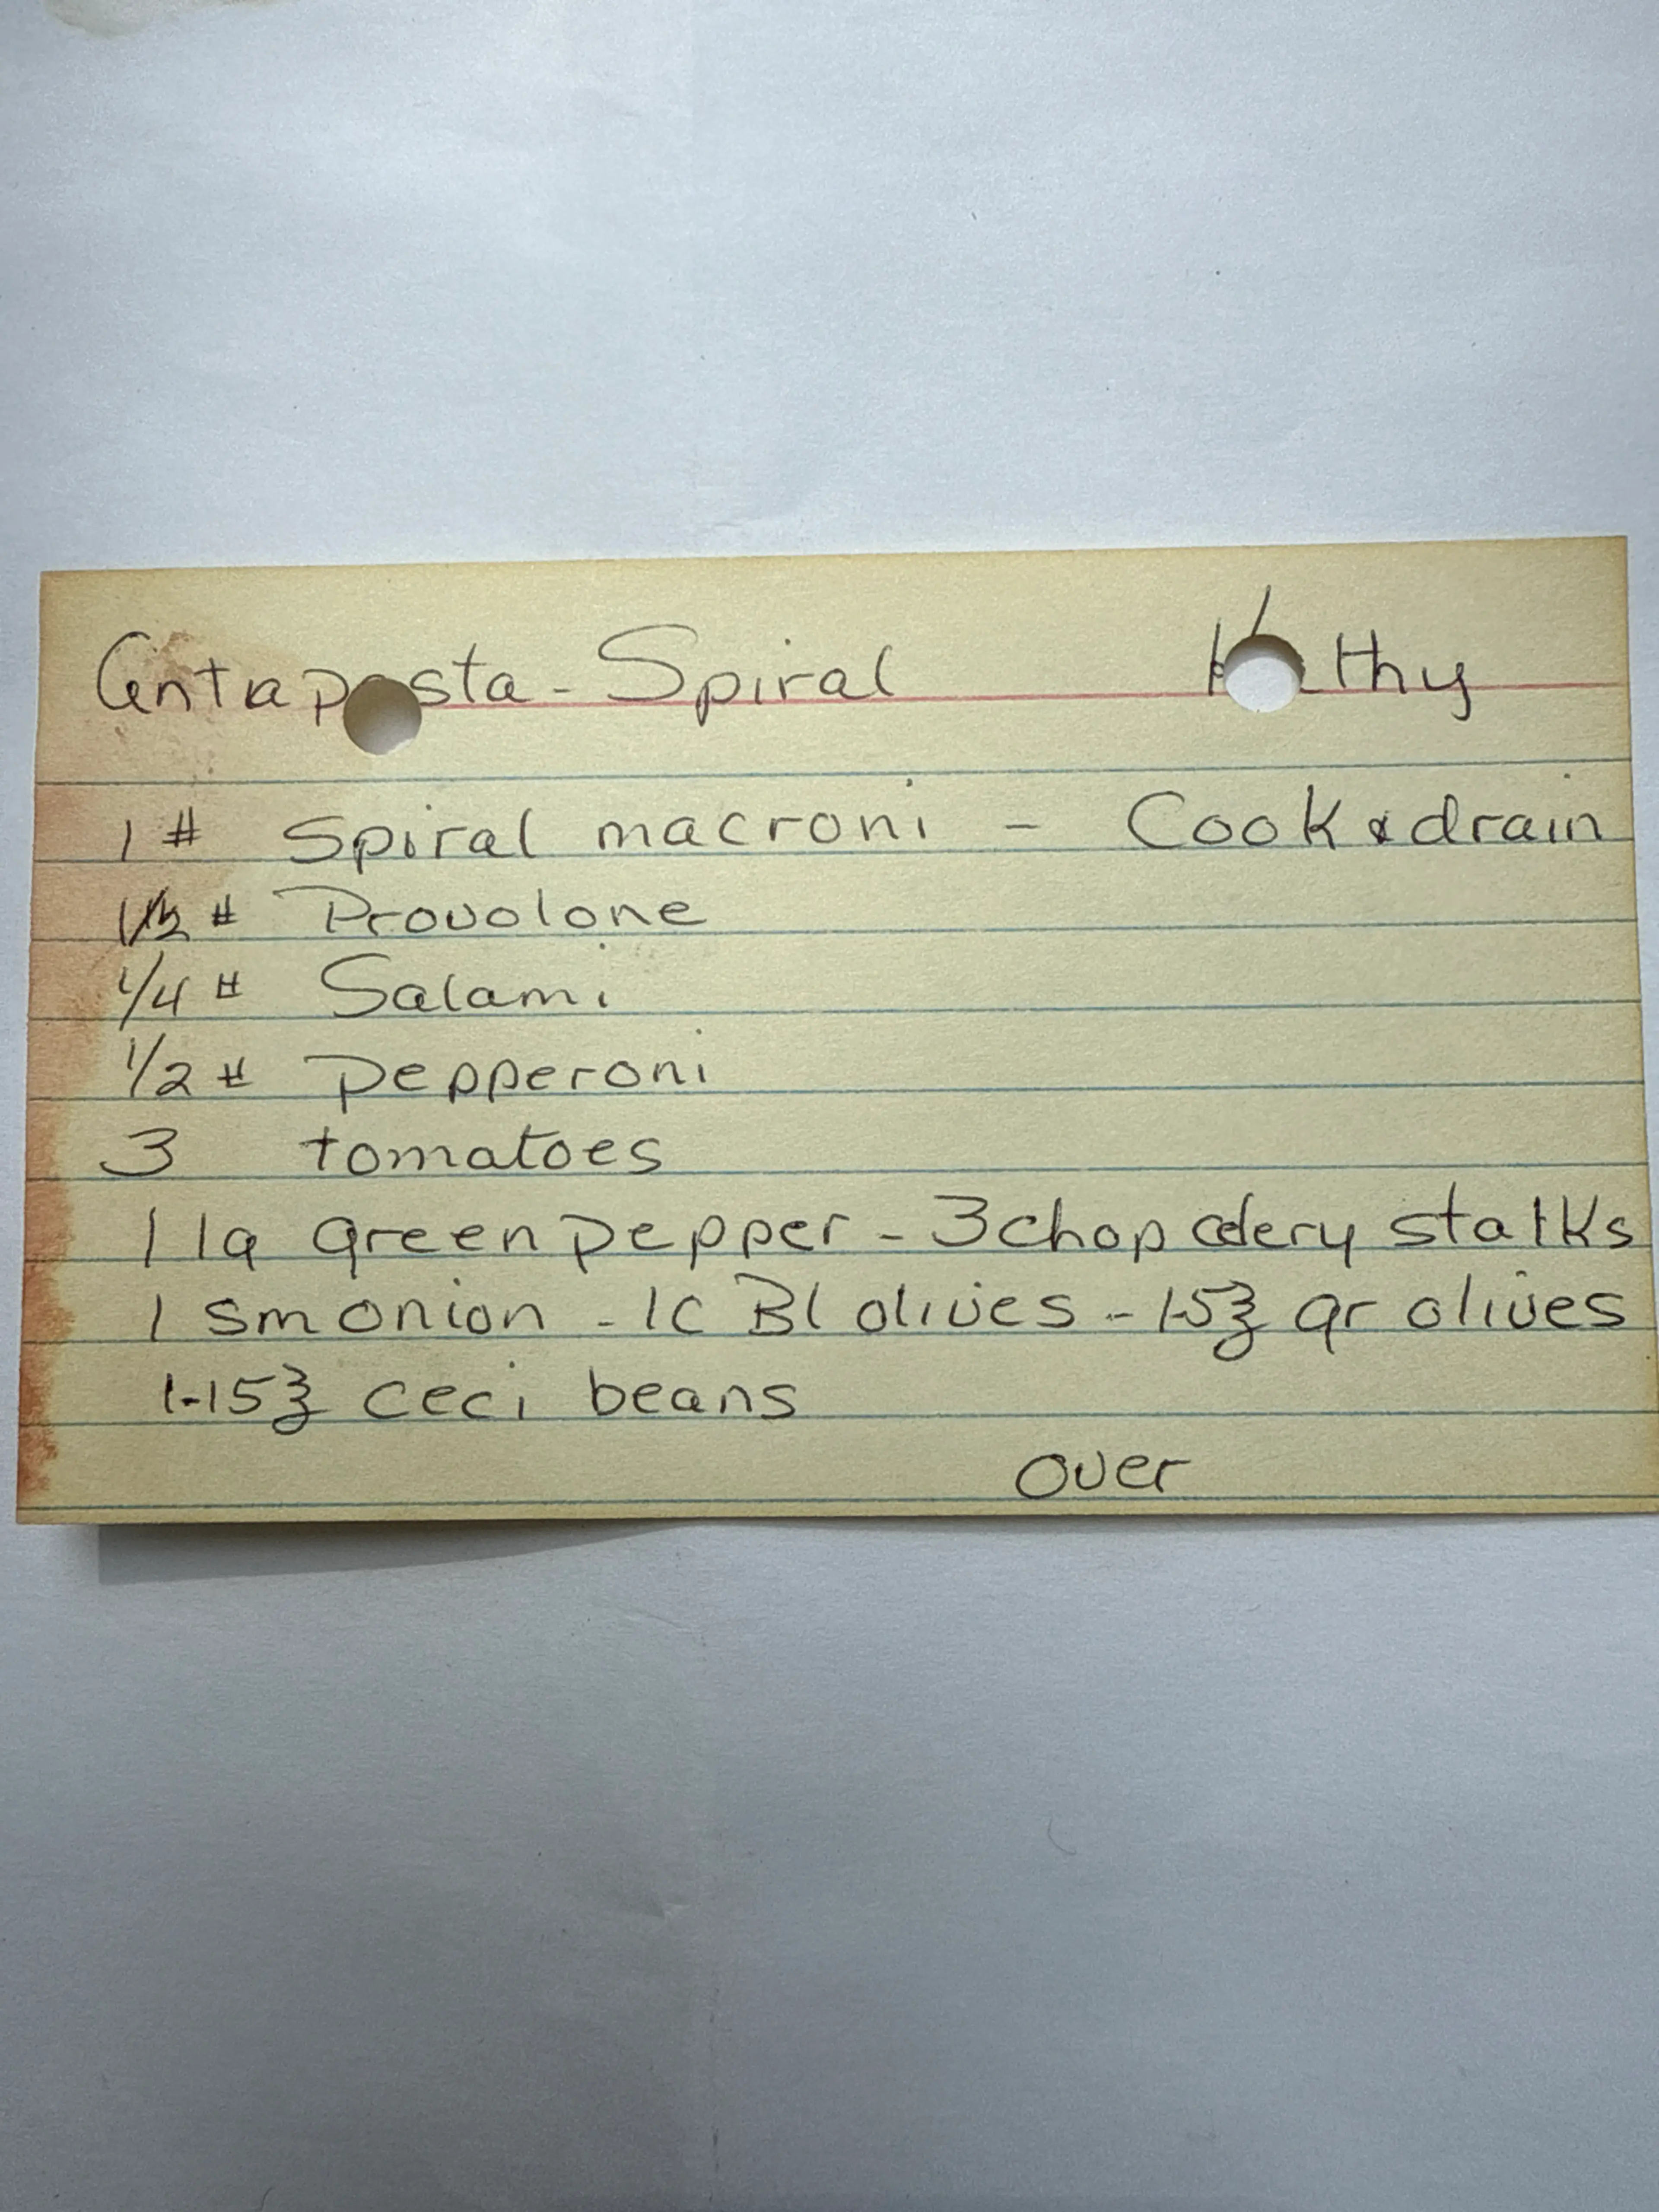 Antapasta - Spiral Kathy
1 # Spiral macroni - Cook & drain
# Provolone
1/4 # Salami
1/2 # Pepperoni
3 tomatoes
1 lg green pepper - 3 chop celery stalks
1 sm onion - 1C Bl olives - 1-5℥ gr olives
1-15℥ ceci beans
over